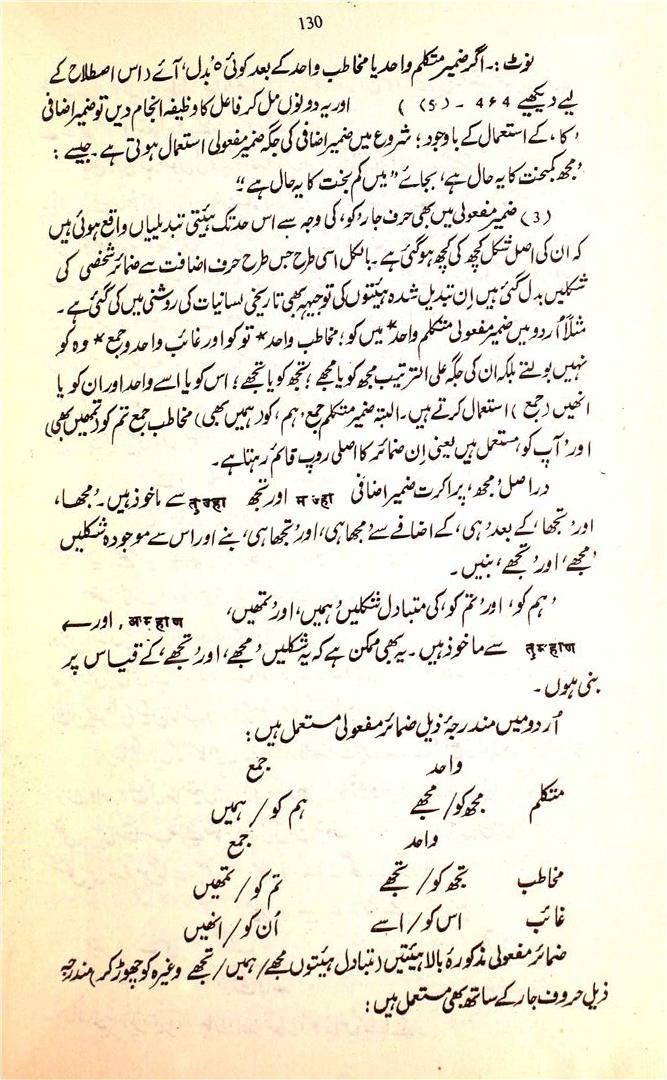 130
نوٹ :۔ اگر ضمیر متکلم واحد یا مخاطب واحد کے بعد کوئی ’بدل‘ آئے (اس اصطلاح کے
لیے دیکھیے 464 ۔ (5) ) اور یہ دونوں مل کر فاعل کا وظیفہ انجام دیں تو ضمیر اضافی
’کا‘ کے استعمال کے باوجود ؛ شروع میں ضمیر اضافی کی جگہ ضمیر مفعولی استعمال ہوتی ہے ۔ جیسے :
’مجھ کمبخت کا یہ حال ہے‘ بجائے ”میں کم بخت کا یہ حال ہے“
(3) ضمیر مفعولی میں بھی حرف جار ’کو‘ کی وجہ سے اس حد تک ہیئتی تبدیلیاں واقع ہوئی ہیں
کہ ان کی اصل شکل کچھ کی کچھ ہو گئی ہے ۔ بالکل اسی طرح جس طرح حرف اضافت سے ضمائر شخصی کی
شکلیں بدل گئی ہیں اِن تبدیل شدہ ہیئتوں کی توجیہہ بھی تاریخی لسانیات کی روشنی میں کی گئی ہے ۔
مثلاً اُردو میں ضمیر مفعولی متکلم واحد * میں کو ؛ مخاطب واحد * تو کو اور غائب واحد و جمع * وہ کو
نہیں بولتے بلکہ ان کی جگہ علی الترتیب مجھ کو یا مجھے ؛ تجھ کو یا تجھے ؛ اس کو یا اسے واحد اور ان کو یا
انھیں (جمع) استعمال کرتے ہیں ۔ البتہ ضمیر متکلم جمع ’ہم‘ کو (ہمیں بھی) مخاطب جمع تم کو (تمھیں بھی)
اور ’آپ کو‘ مستعمل ہیں یعنی اِن ضمائر کا اصلی روپ قائم رہتا ہے ۔
دراصل ’مجھ‘ پراکرت ضمیر اضافی मज्हा اور تجھ तुज्हा سے ماخوذ ہیں ۔ ’مجھا‘،
اور ’تجھا‘ کے بعد ’ہی‘ کے اضافے سے ’مجھا ہی‘ اور ’تجھا ہی‘ بنے اور اس سے موجودہ شکلیں
’مجھے‘ اور ’تجھے‘ بنیں ۔
’ہم کو‘ اور ’تم کو‘ کی متبادل شکلیں ’ہمیں‘ اور ’تمھیں‘، अम्हाण ، اور ←
तुम्हाण سے ماخوذ ہیں ۔ یہ بھی ممکن ہے کہ یہ شکلیں ’مجھے‘ اور ’تجھے‘ کے قیاس پر
بنی ہوں ۔
اُردو میں مندرجۂ ذیل ضمائر مفعولی مستعمل ہیں :
واحد جمع
متکلم مجھ کو / مجھے ہم کو / ہمیں
واحد جمع
مخاطب تجھ کو / تجھے تم کو / تمھیں
غائب اس کو / اسے اُن کو / انھیں
ضمائر مفعولی مذکورۂ بالا ہیئتیں (متبادل ہیئتوں مجھے / ہمیں / تجھے وغیرہ کو چھوڑ کر) مندرجہ
ذیل حروف جار کے ساتھ بھی مستعمل ہیں :